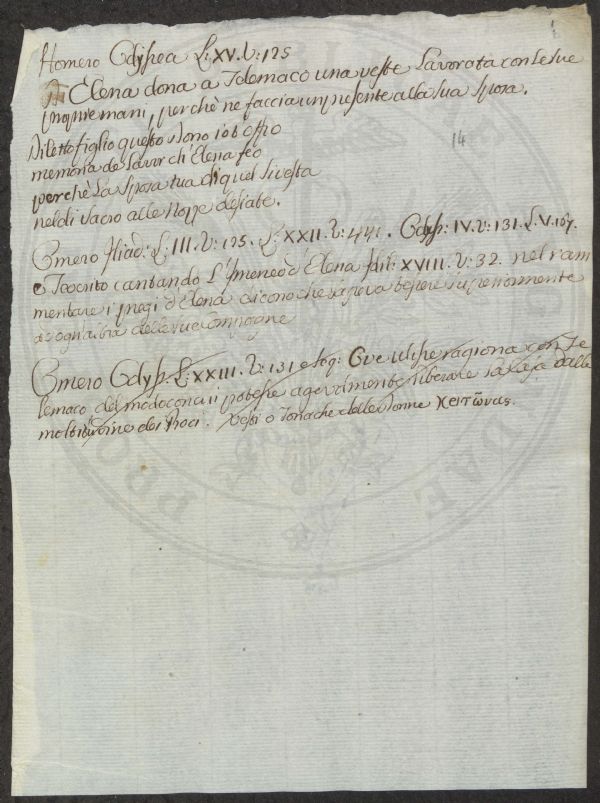 1
Homero Odyssea L: XV. V: 125
Elena dona a Telemaco una veste Lavorata con le sue
proprie mani, perchè ne faccia un presente alla sua sposa.
Diletto figlio questo dono io t'offro
14
memoria de Lavor ch'Elena feo
perchè La sposa tua di quel si vesta
nel di sacro alle Nozze desiate.
Omero Iliad: L: III. V: 125. L: XXII. V: 441. Odys: IV. V: 131. L. V. 167.
e Teocrito cantando L'Imeneo d'Elena Idil: XVIII. V: 32. nel ram
mentare i pregi d'Elena dicono che sapeva tessere superiormente
ad ogni altra delle sue Compagne
Omero Odys: L: XXIII. V: 131 e seg: Ove Ulisse ragiona con Te
lemaco del modo con cui potesse agevolmente liberare la Casa dalla
moltitudine dei Proci. Vesti o Tonache delle Donne χειτῶνας.
PRO